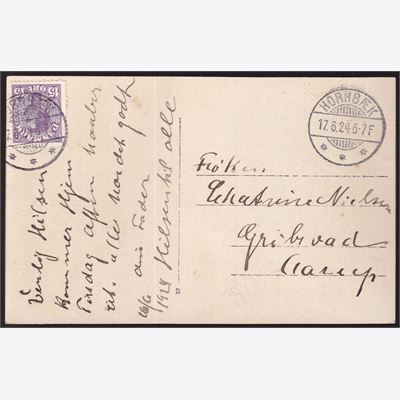 DANMARK
15 ØRE 15
HORNBÆK
17.6.24.6-7F
Venlig Hilsen
kommer Hjem
Tirsdag aften haaber
alle har det godt
din Fader
16/6 1924 Hilsen til alle
Frøken
Chatrine Nielsen
Gribsvad
Aarup